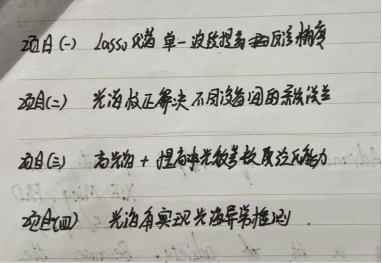 项目(一) Lasso 代替 单一波段提高 反演精度
项目(二) 光谱校正解决不同设备间的系统误差
项目(三) 高光谱 + 提高 光 参数 反演能力
项目(四) 光谱 实现光谱异常推测.